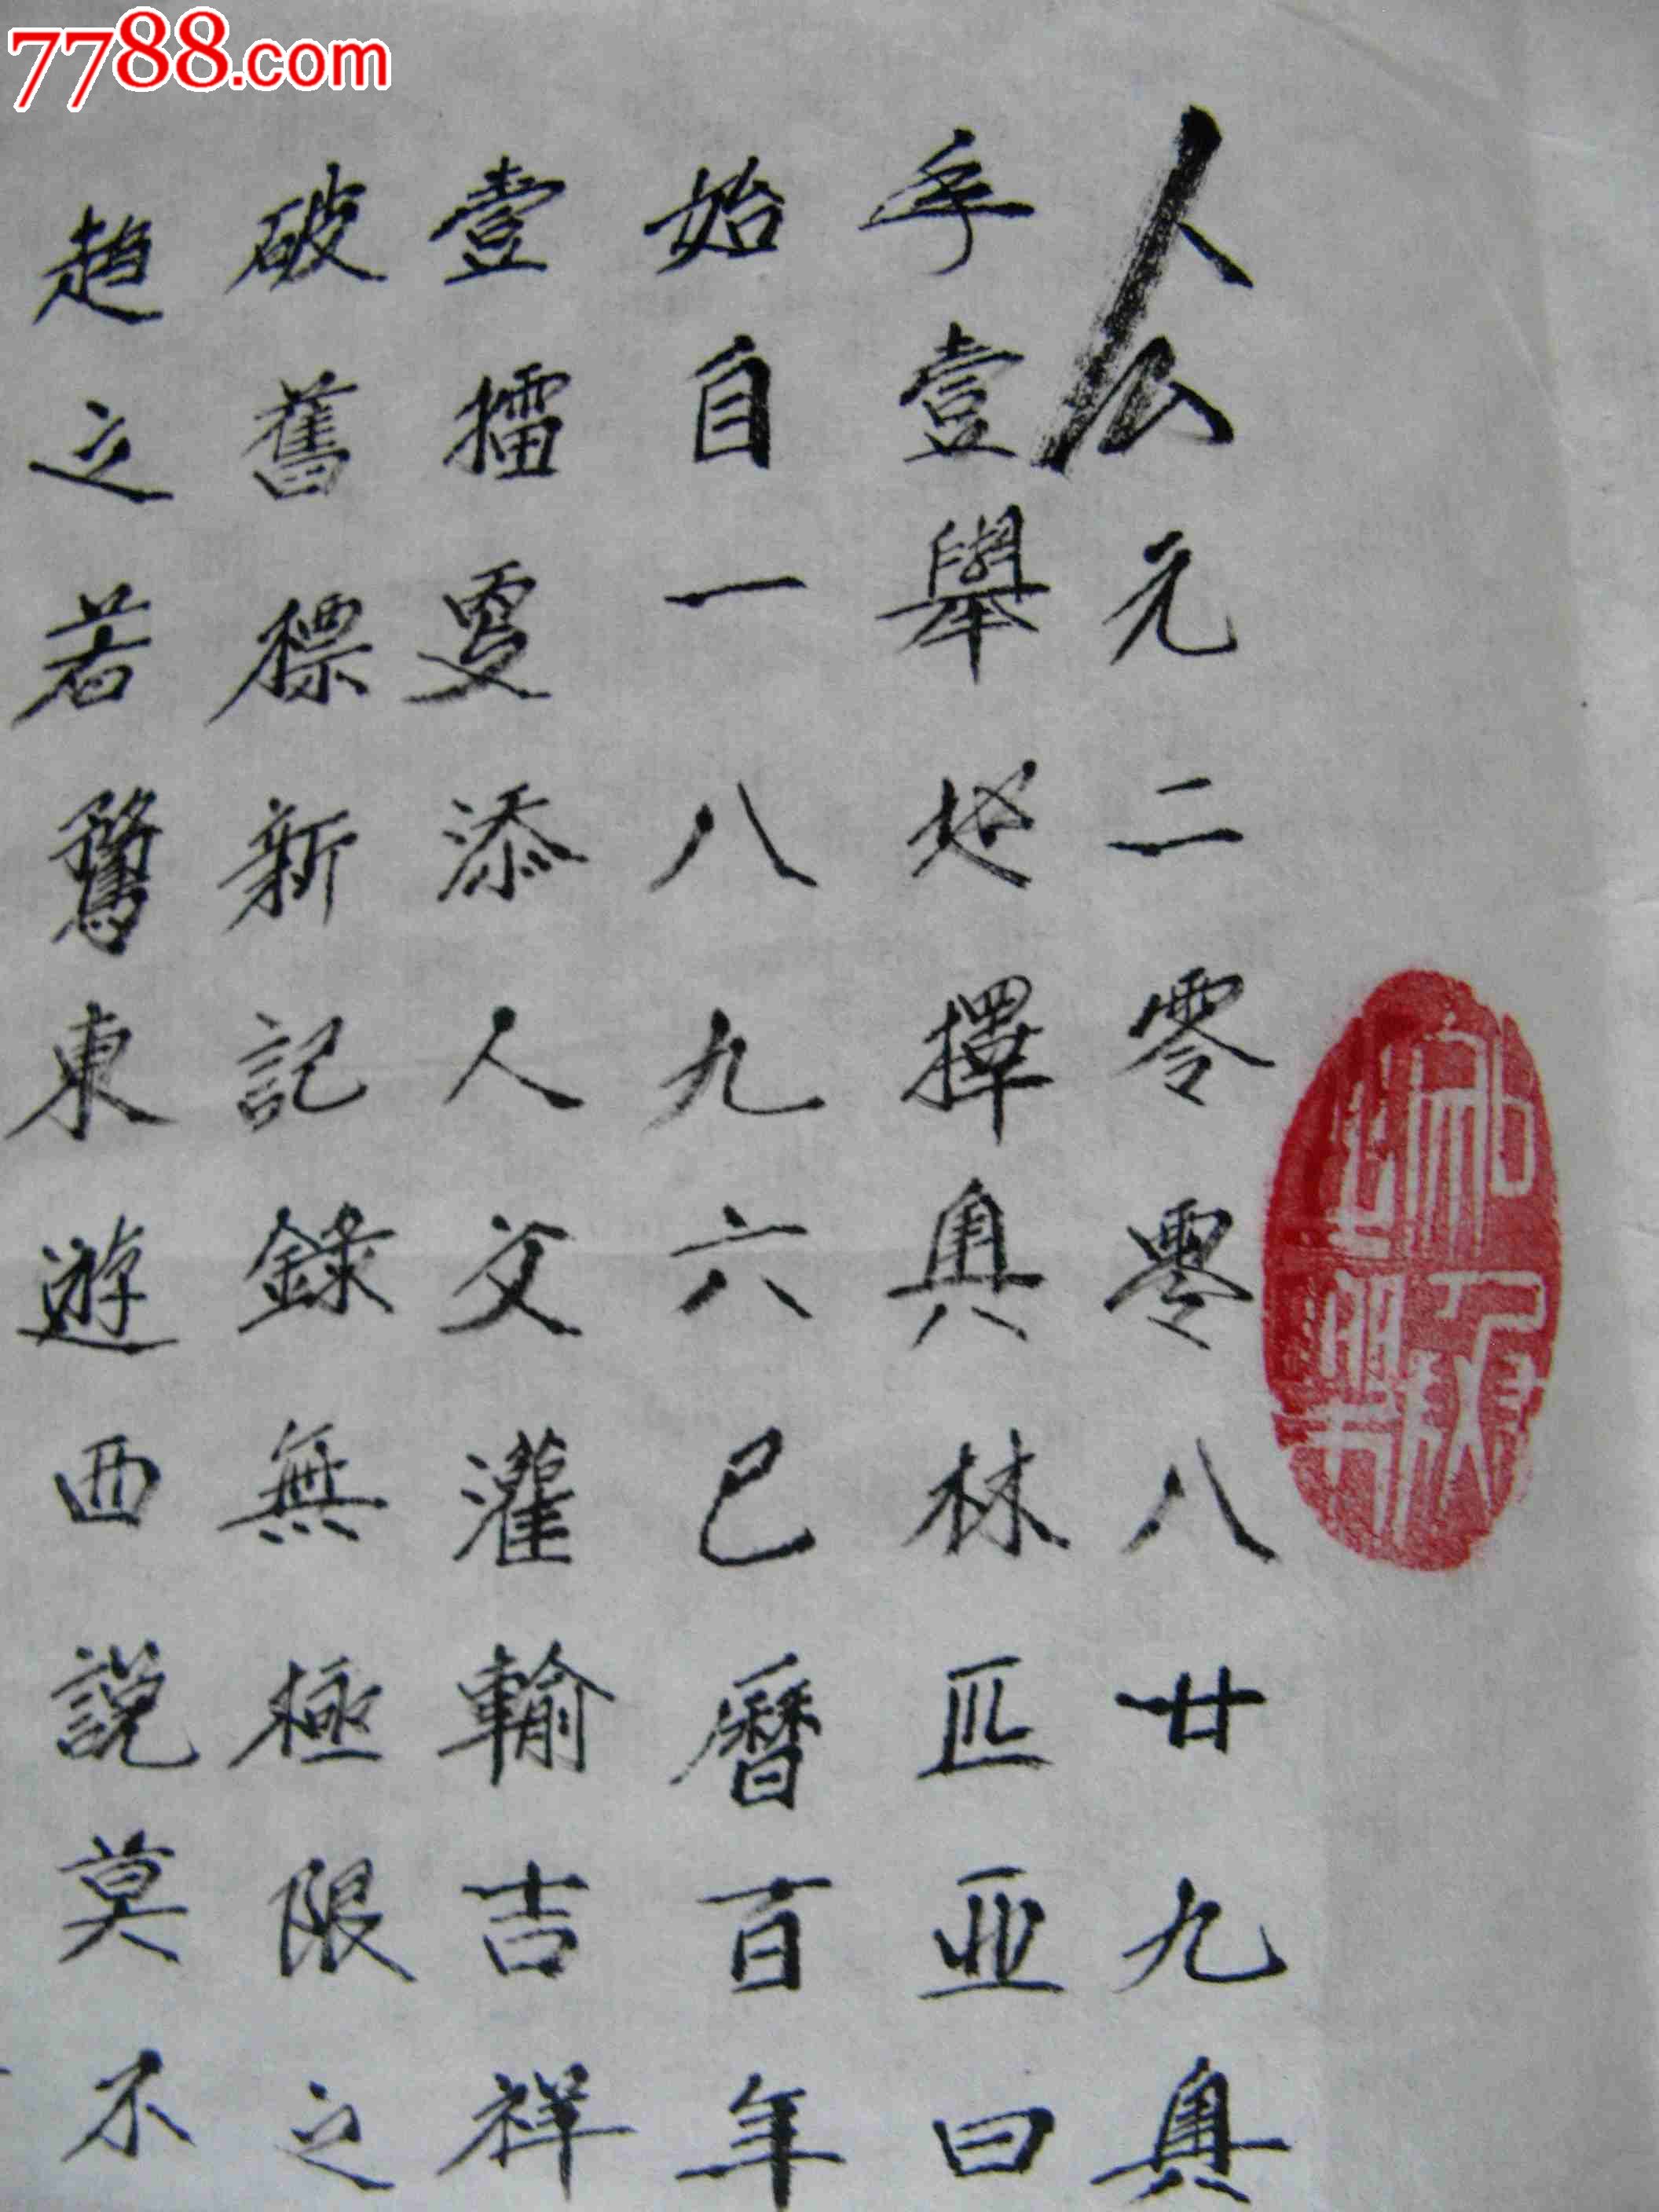 7788.com
人公元二零零八廿九奥
乎壹舉地擇奥林匹亚曰
始自一八九六已曆百年
壹擂更添人文灌輸吉祥
破舊標新記錄無極限之
趋之若鶩東遊西說莫不